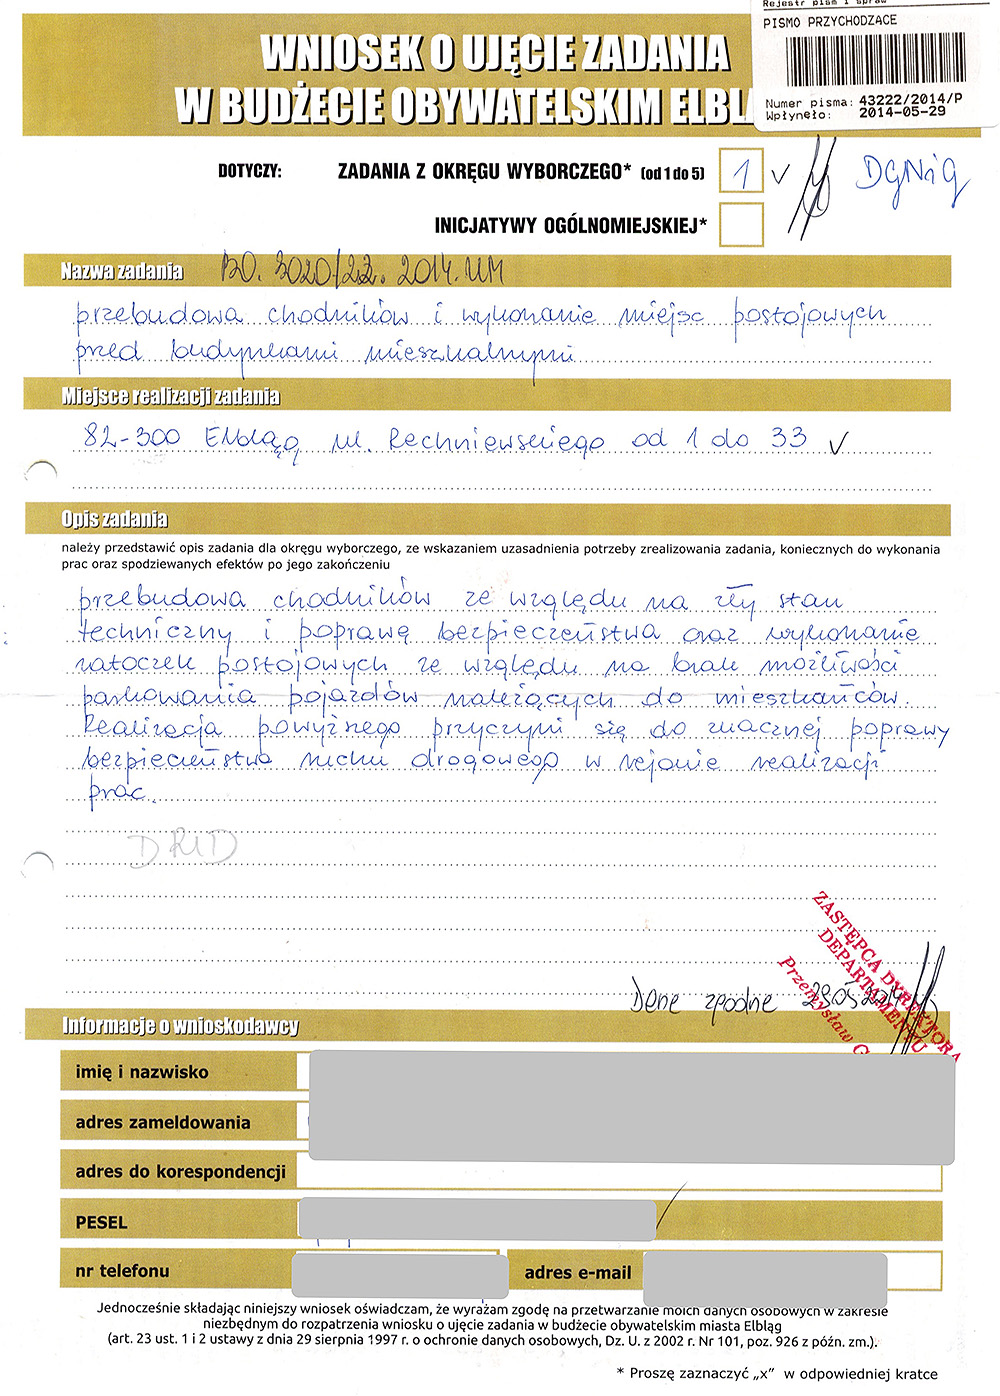 Rejestr pism i spraw
PISMO PRZYCHODZĄCE
Numer pisma: 43222/2014/P
Wpłynęło: 2014-05-29
WNIOSEK O UJĘCIE ZADANIA
W BUDŻECIE OBYWATELSKIM ELBLĄ
DOTYCZY: ZADANIA Z OKRĘGU WYBORCZEGO* (od 1 do 5) 1 DGNiG
INICJATYWY OGÓLNOMIEJSKIEJ*
Nazwa zadania BO. 3020/22. 2014. UM
przebudowa chodników i wykonanie miejsc postojowych
przed budynkami mieszkalnymi
Miejsce realizacji zadania
82-300 Elbląg ul. Rechniewskiego od 1 do 33
Opis zadania
należy przedstawić opis zadania dla okręgu wyborczego, ze wskazaniem uzasadnienia potrzeby zrealizowania zadania, koniecznych do wykonania
prac oraz spodziewanych efektów po jego zakończeniu
przebudowa chodników ze względu na zły stan
techniczny i poprawę bezpieczeństwa oraz wykonanie
zatoczek postojowych ze względu na brak możliwości
parkowania pojazdów należących do mieszkańców.
Realizacja powyższego przyczyni się do znacznej poprawy
bezpieczeństwa ruchu drogowego w rejonie realizacji
prac.
DRID
ZASTĘPCA DYREKTORA
DEPARTAMENTU
Przemysław
Dane zgodne
Informacje o wnioskodawcy
imię i nazwisko
adres zameldowania
adres do korespondencji
PESEL
nr telefonu adres e-mail
Jednocześnie składając niniejszy wniosek oświadczam, że wyrażam zgodę na przetwarzanie moich danych osobowych w zakresie
niezbędnym do rozpatrzenia wniosku o ujęcie zadania w budżecie obywatelskim miasta Elbląg
(art. 23 ust. 1 i 2 ustawy z dnia 29 sierpnia 1997 r. o ochronie danych osobowych, Dz. U. z 2002 r. Nr 101, poz. 926 z późn. zm.).
* Proszę zaznaczyć „x” w odpowiedniej kratce